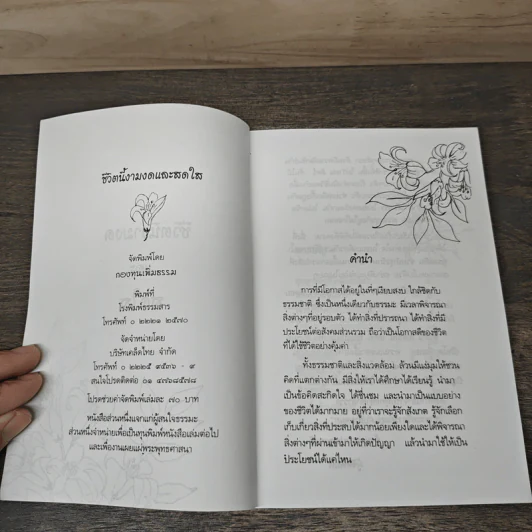 ชีวิตนี้งามงดและสดใส
จัดพิมพ์โดย
กองทุนเพิ่มธรรม
พิมพ์ที่
โรงพิมพ์ธรรมสาร
โทรศัพท์ ๐ ๒๒๒๑ ๒๕๗๐
จัดจำหน่ายโดย
บริษัทเคล็ดไทย จำกัด
โทรศัพท์ ๐ ๒๒๒๕ ๙๕๓๖ - ๙
สนใจโปรดติดต่อ ๐๑
โปรดช่วยค่าจัดพิมพ์เล่มละ ๗๐ บาท
หนังสือส่วนหนึ่งแจกแก่ผู้สนใจธรรมะ
ส่วนหนึ่งจำหน่ายเพื่อเป็นทุนพิมพ์หนังสือเล่มต่อไป
และเพื่องานเผยแผ่พระพุทธศาสนา
คำนำ
การที่มีโอกาสได้อยู่ในที่ๆเงียบสงบ ใกล้ชิดกับ
ธรรมชาติ ซึ่งเป็นหนึ่งเดียวกับธรรมะ มีเวลาพิจารณา
สิ่งต่างๆที่อยู่รอบตัว ได้ทำสิ่งที่ปรารถนา ได้ทำสิ่งที่มี
ประโยชน์ต่อสังคมส่วนรวม ถือว่าเป็นโอกาสดีของชีวิต
ที่ได้ใช้ชีวิตอย่างคุ้มค่า
ทั้งธรรมชาติและสิ่งแวดล้อม ล้วนมีแง่มุมให้ชวน
คิดที่แตกต่างกัน มีสิ่งให้เราได้ศึกษาได้เรียนรู้ นำมา
เป็นข้อคิดสะกิดใจ ได้ชื่นชม และนำมาเป็นแบบอย่าง
ของชีวิตได้มากมาย อยู่ที่ว่าเราจะรู้จักสังเกต รู้จักเลือก
เก็บเกี่ยวสิ่งที่ประสบได้มากน้อยเพียงใดและได้พิจารณา
สิ่งต่างๆที่ผ่านเข้ามาให้เกิดปัญญา แล้วนำมาใช้ให้เป็น
ประโยชน์ได้แค่ไหน